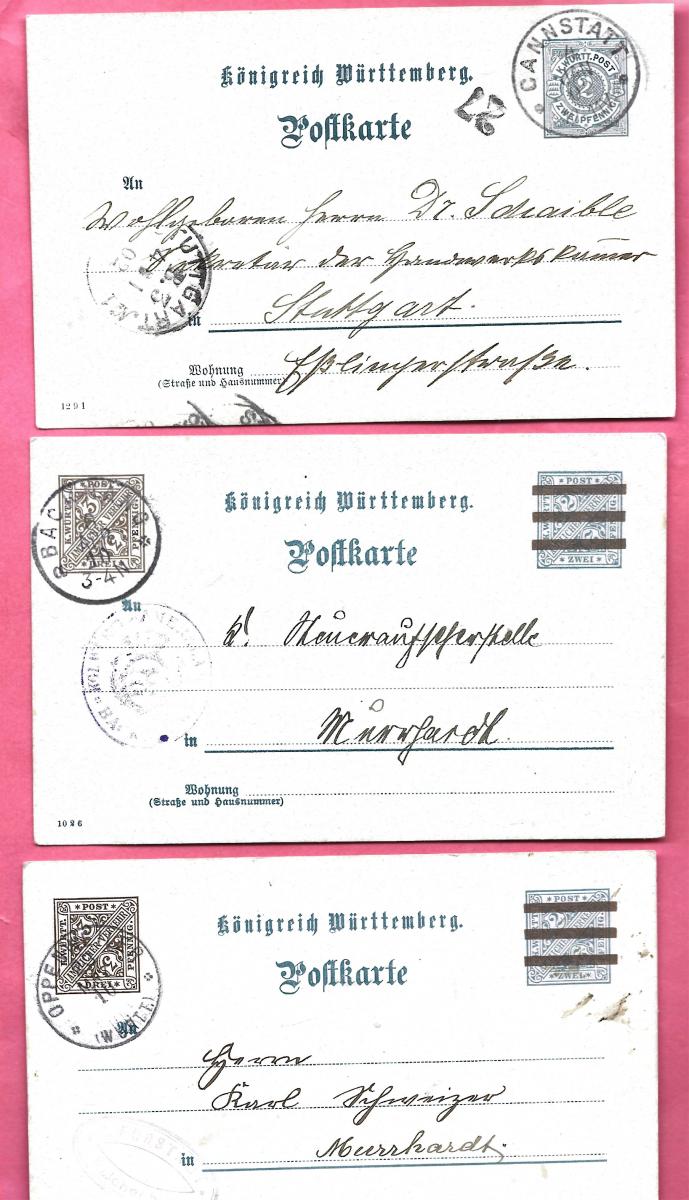 Königreich Württemberg.
CANNSTATT
K. WÜRTT. POST
2
ZWEI PFENNIG
27
Postkarte
An
Wohlgeboren Herrn Dr. Schaible
Sekretär der Handwerkskammer
STUTTGART. No 1
in Stuttgart.
Eßlingerstraße.
Wohnung
(Straße und Hausnummer)
1291
Königreich Württemberg.
POST
K. WÜRTT.
PFENNIG
DREI
BAC
3-4 N
POST
ZWEI
Postkarte
An
K. Steueraufseherstelle
in Murrhardt.
Wohnung
(Straße und Hausnummer)
1026
Königreich Württemberg.
POST
K. WÜRTT.
3
PFENNIG
DREI
OPPE
(WÜRTT.)
POST
K. WÜRTT.
PFENNIG
ZWEI
Postkarte
An
Herrn
Karl Schweizer
in Murrhardt.